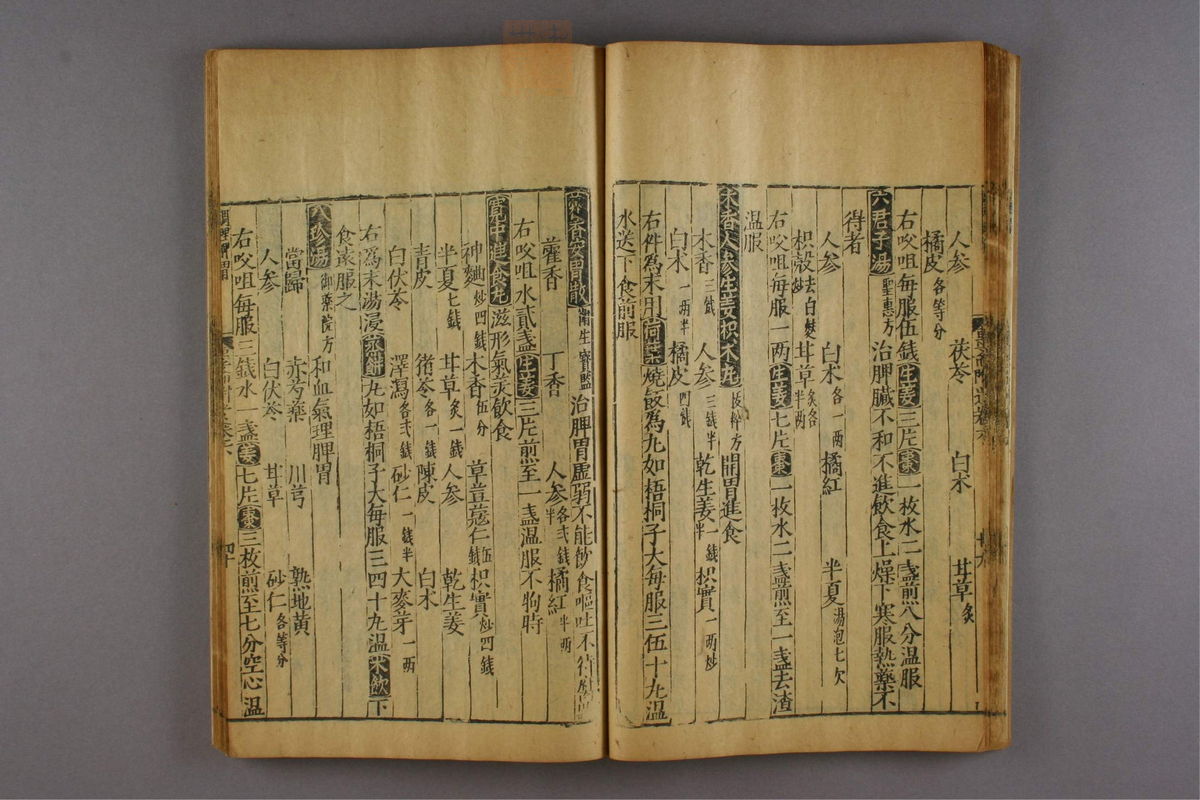 人参 茯苓 白朮 甘草炙
橘皮各等分
右㕮咀每服伍錢生姜三片棗一枚水二盞煎八分温服
六君子湯聖惠方 治脾臟不和不進飲食上燥下寒服熱藥不
得者
人参 白朮各一两 橘紅 半夏湯泡七次
枳殼去白麩炒 甘草炙各半两
右㕮咀每服一两生姜七片棗一枚水二盞煎至一盞去渣
温服
木香人参生姜枳朮丸拔粹方 開胃進食
木香三錢 人参三錢半 乾生姜一錢半 枳實一两炒
白朮一两半 橘皮四錢
右件為末用荷葉燒飯為丸如梧桐子大每服三伍十丸温
水送下食前服
藿香安胃散衛生寳鑑 治脾胃虚弱不能飲食嘔吐不待
藿香 丁香 人参各弍錢半 橘紅半两
右㕮咀水貳盞生姜三片煎至一盞温服不拘時
寛中進食丸 滋形氣美飲食
神麯炒四錢 木香伍分 草荳蔲仁伍錢 枳實炒四錢
半夏七錢 甘草炙一錢 人参 乾生姜
青皮 猪苓各一錢 陳皮 白朮
白伏苓 澤瀉各弍錢 砂仁一錢半 大麥芽一两
右為末湯浸𤇆餅丸如梧桐子大每服三四十丸温米飲下
食遠服之
八珍湯御藥院方 和血氣理脾胃
當歸 赤芍藥 川芎 熟地黄
人参 白伏苓 甘草 砂仁各等分
右㕮咀每服三錢水一盞姜七片棗三枚煎至七分空心温